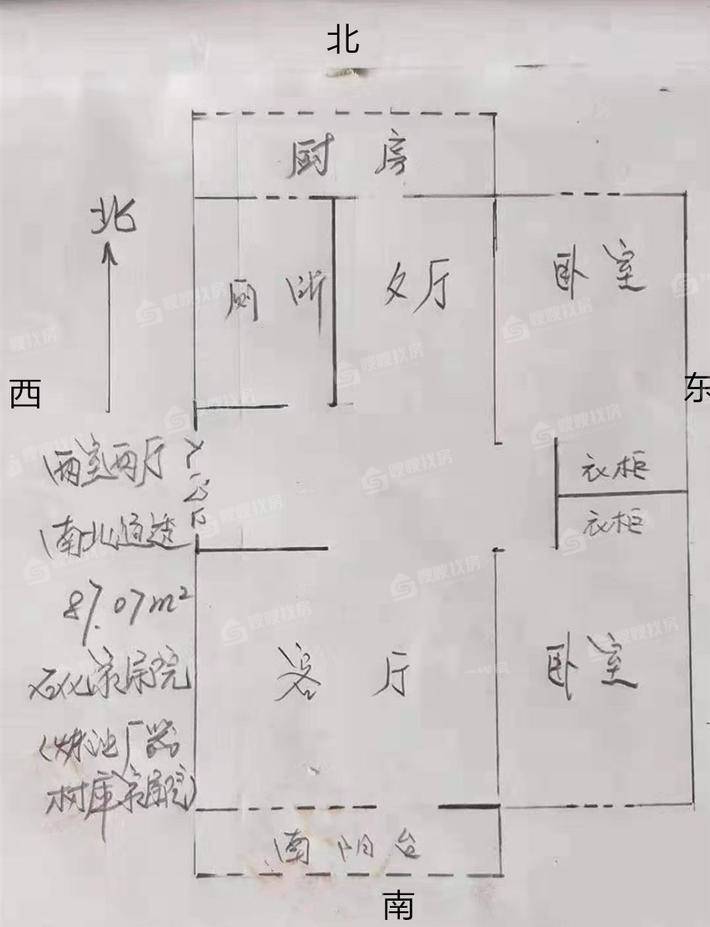 北
厨房
北
厕所
夕厅
卧室
西
东
入户门
衣柜
衣柜
两室两厅
南北通透
87.07m²
石化家属院
(炼油厂器
材库家属院)
客厅
卧室
南阳台
南
嗖嗖找房